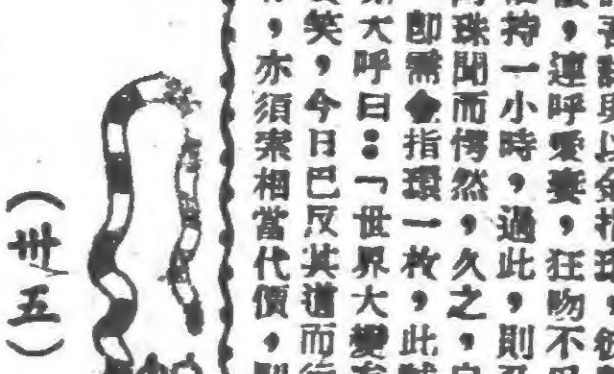 以金指環，
，連呼愛妻，狂吻不
持一小時，過此，則
珠聞而愕然，久之，
即需金指環一枚，此
大呼曰：「世界大變
笑，今日巴反其道而行
，亦須索相當代價，
（卅五）